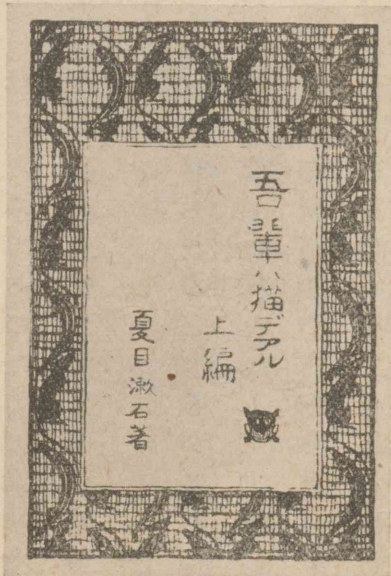 吾輩ハ猫デアル
上編
夏目漱石著